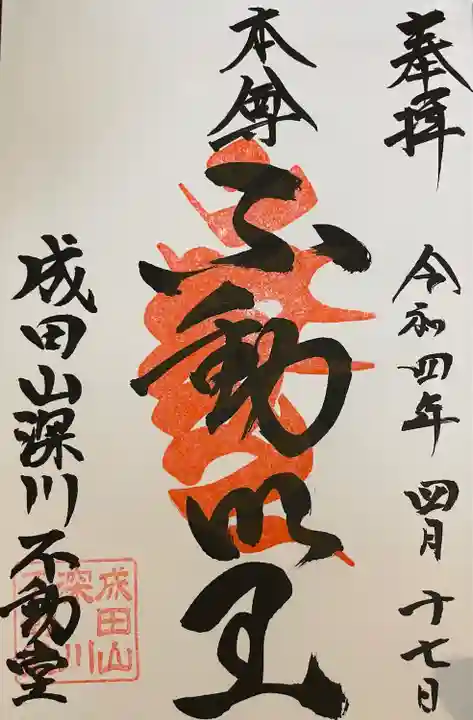 奉拝
令和四年 四月 十七日
本尊
不動明王
成田山深川不動堂
成田山
深川